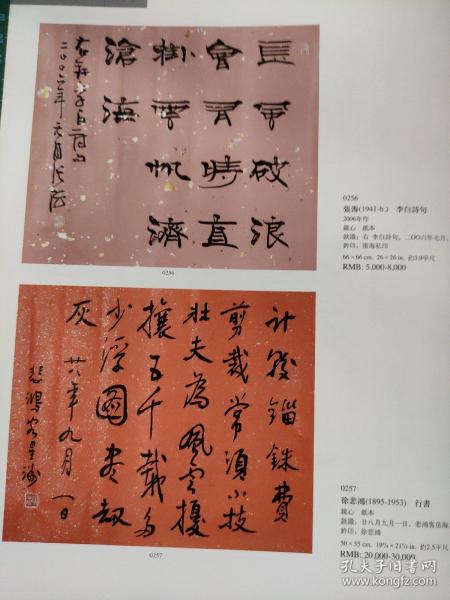 長風破浪
會有時直
掛雲帆濟
滄海
二〇〇六年元月張海
0256
0256
張海(1941-b.) 李白詩句
2006年作
鏡心 紙本
款識：右 李白詩句。二〇〇六年元月，
鈐印：張海私印
66 × 66 cm. 26 × 26 in. 約3.9平尺
RMB: 5,000-8,000
計較錙銖費
剪裁常須小技
壯夫為風雲擾
攘五千載多
少浮圖盡劫
灰 廿八年九月一日
悲鴻客星洲
0257
0257
徐悲鴻(1895-1953) 行書
鏡心 紙本
款識：廿八月九月一日，悲鴻客星海，
鈐印：徐悲鴻
50 × 55 cm. 19⅝ × 21⅝ in. 約2.5平尺
RMB: 20,000-30,000
孔夫子旧书网